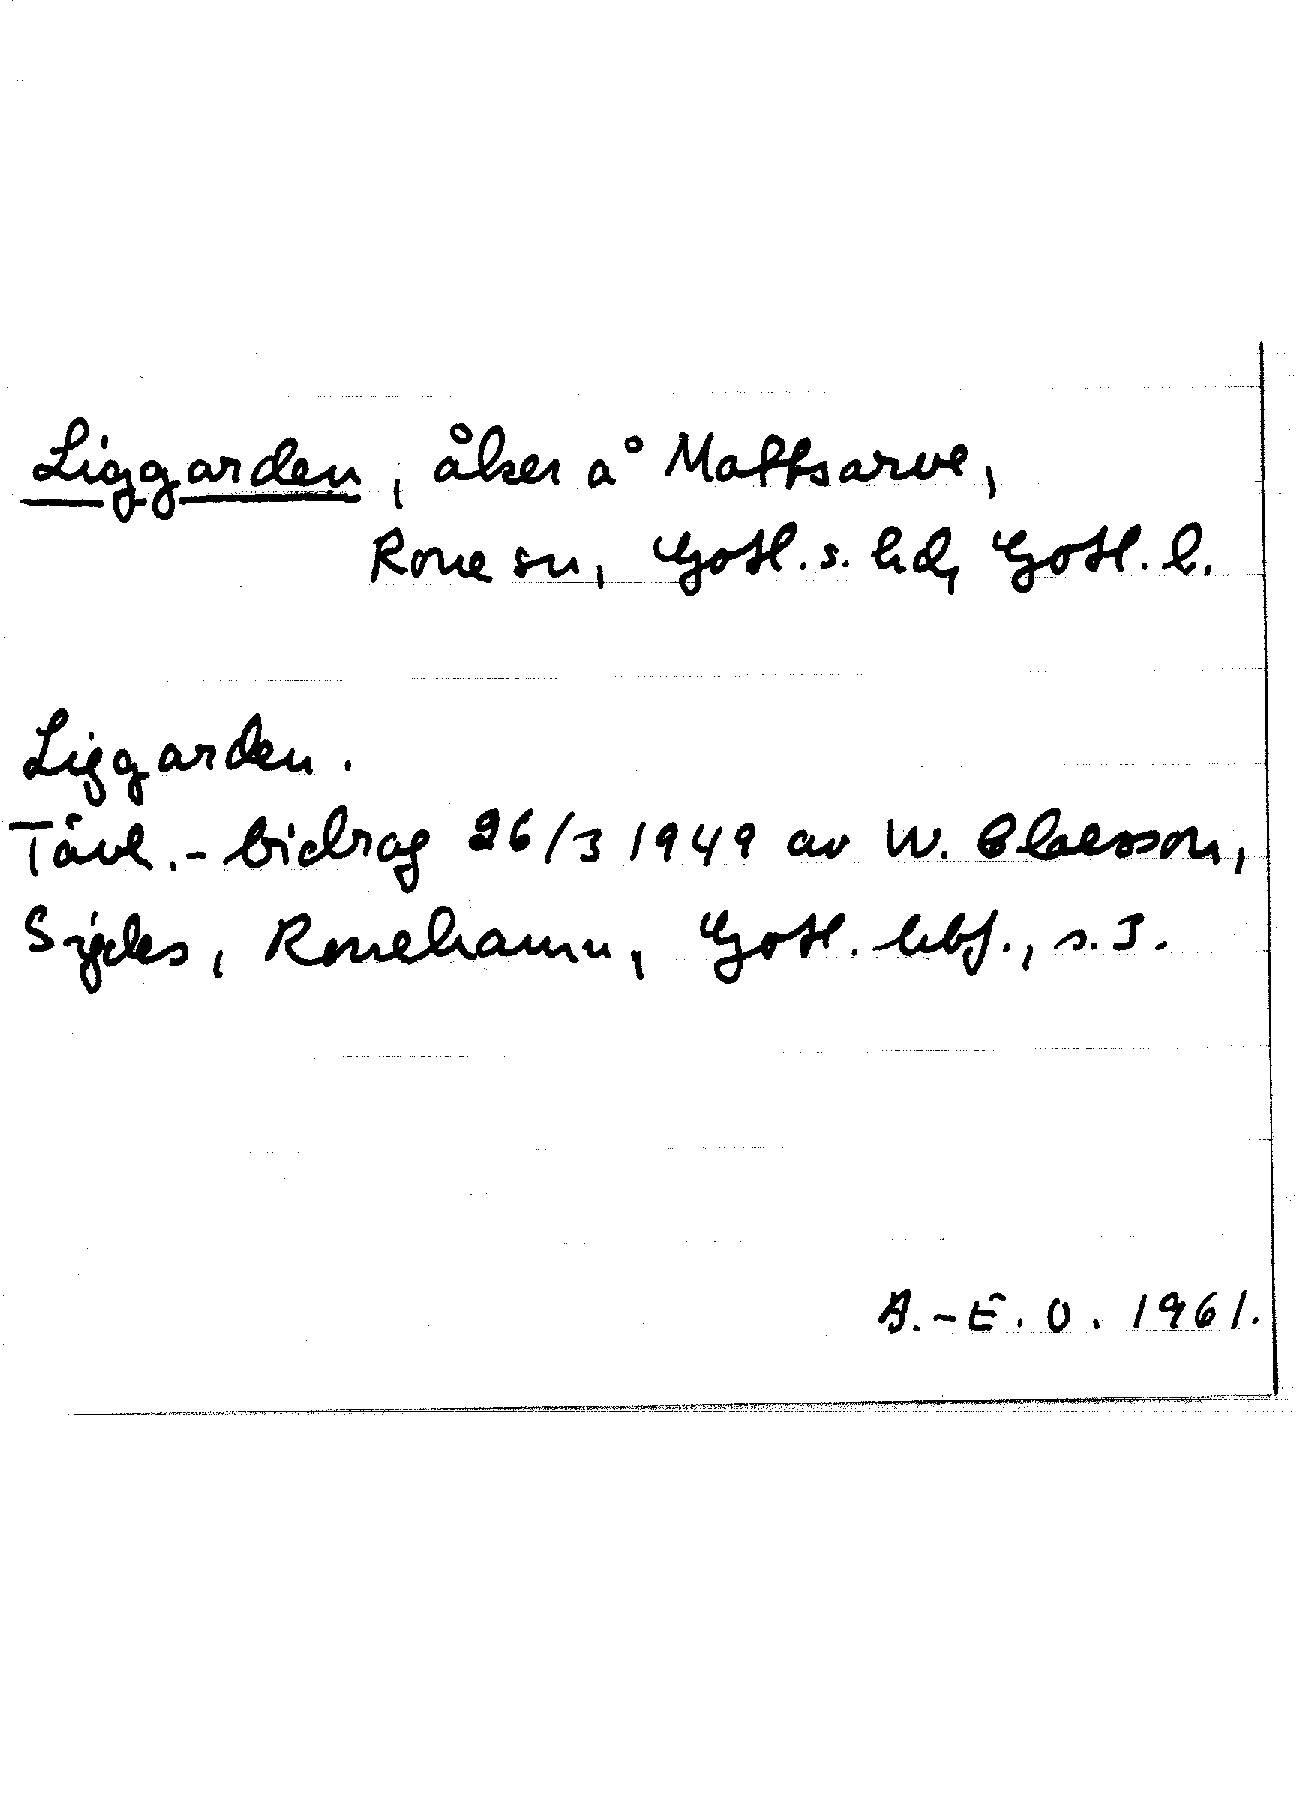 Liggarden, åker å Mattsarve,
Rone sn, Gotl. s. hd, Gotl. l.
Liggarden.
Tävl.-bidrag 26/3 1949 av W. Claesson,
Sigdes, Ronehamn, Gotl. hbf., s. 3.
A.-E. O. 1961.